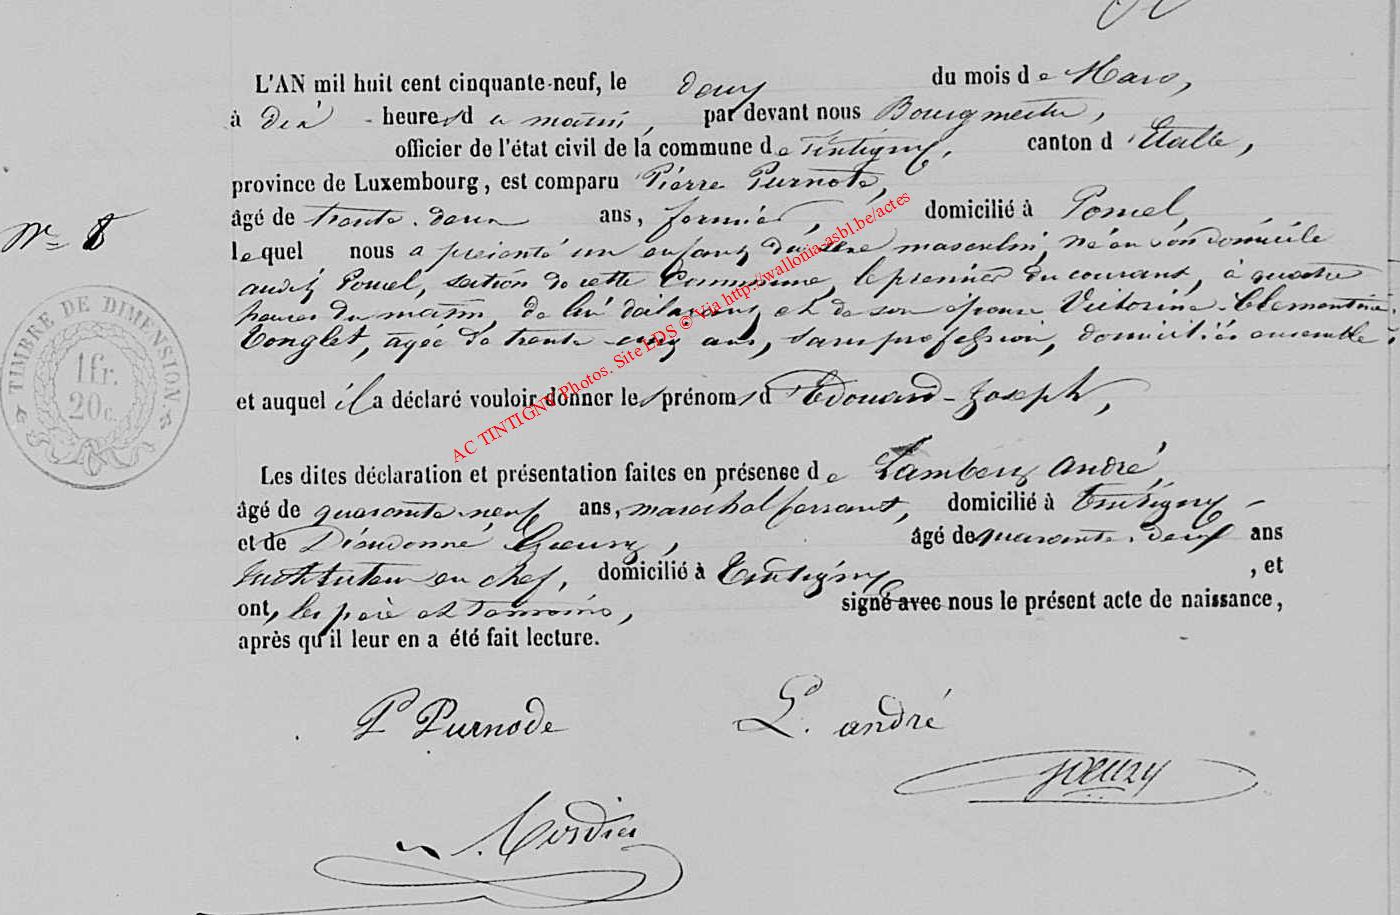 L'AN mil huit cent cinquante-neuf, le deux du mois de Mars,
à dix heures du matin, par devant nous Bourgmestre,
officier de l'état civil de la commune de Tintigny, canton d'Etalle,
province de Luxembourg, est comparu Pierre Purnode,
âgé de trente-deux ans, fermier, domicilié à Poncel,
N° 8
lequel nous a présenté un enfant du sexe masculin, né en son domicile
audit Poncel, section de cette Commune, le premier du courant, à quatre
heures du matin, de lui déclarant et de son épouse Victorine Clémentine
Tonglet, agée de trente-cinq ans, sans profession, domiciliés ensemble,
TIMBRE DE DIMENSION
1 fr.
20 c.
et auquel il a déclaré vouloir donner les prénoms d'Edouard-Joseph,
Les dites déclaration et présentation faites en présense de Lambert André,
âgé de quarante-neuf ans, maréchal ferrant, domicilié à Tintigny
et de Dieudonné Goeury, âgé de quarante-deux ans
Instituteur en chef, domicilié à Tintigny, et
ont, les père et témoins, signé avec nous le présent acte de naissance,
après qu'il leur en a été fait lecture.
P Purnode L. andré
goeury
AC TINTIGNY Photos. Site LDS © Via http://wallonia-asbl.be/actes